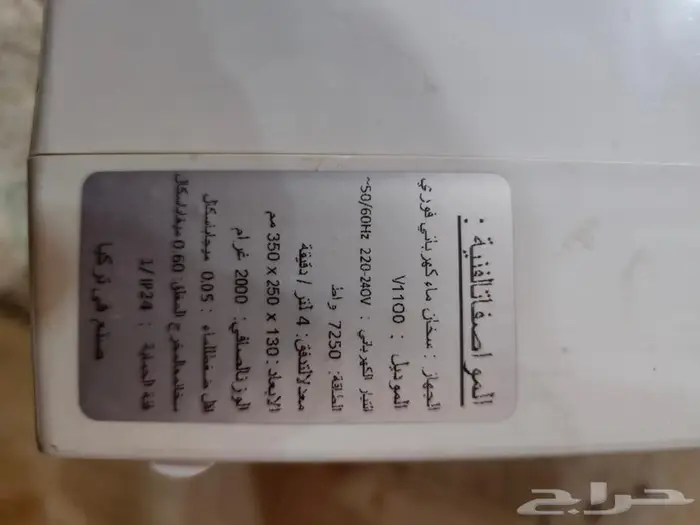 المواصفات الفنية :
الجهاز : سخان ماء كهربائي فوري
الموديل : V1100
التيار الكهربائي : 220-240V 50/60Hz~
الطاقة: 7250 واط
معدل التدفق: 4 لتر / دقيقة
الابعاد : 130 x 250 x 350 مم
الوزن الصافي: 2000 غرام
اقل ضغط للماء : 0.05 ميجا باسكال
المخرج المغلق: 0.60 ميجا باسكال
فئة الحماية : 1/ IP24
صنع في تركيا
حراج